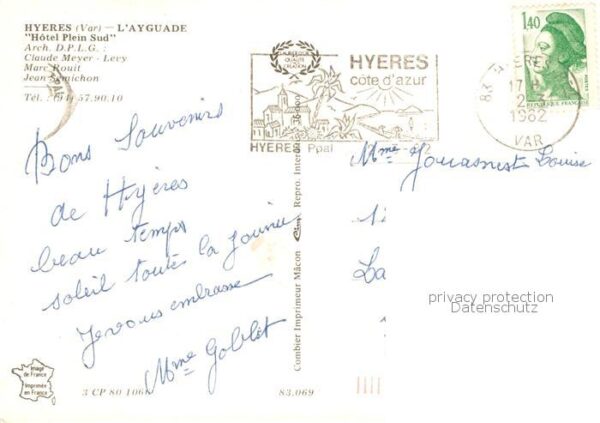 HYERES (Var) — L'AYGUADE
"Hôtel Plein Sud"
Arch. D.P.L.G.:
Claude Meyer - Levy
Marc Rouit
Jean
Tel.: (94) 57.90.10
HYERES
côte d'azur
HYERES Ppal
1,40
REPUBLIQUE FRANÇAISE
83 HYERES
17 H
1982
VAR
Bons Souvenirs
de Hyères
beau temps
soleil toute la journée
Je vous embrasse
Mme Goblet
Mme Louise
La
privacy protection
Datenschutz
Combier Imprimeur Mâcon
Repro. Interdite
Image
de France
Imprimée
en France
3 CP 80 106
83.069